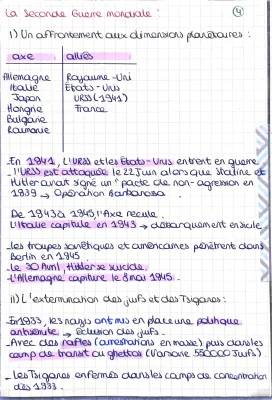 La Seconde Guerre mondiale : 4
I) Un affrontement aux dimensions planétaires :
axe alliés
Allemagne Royaume-Uni
Italie Etats-Unis
Japon URSS (1941)
Hongrie France
Bulgarie
Roumanie
- En 1941, l'URSS et les Etats-Unis entrent en guerre
- l'URSS est attaquée le 22 Juin alors que Staline et
Hitler avait signé un "pacte de non-agression en
1939 → Opération Barbarossa
De 1943 à 1945, l'Axe recule.
L'Italie capitule en 1943 → débarquement en Sicile
- les troupes soviétiques et américaines pénètrent dans
Berlin en 1945
- Le 30 Avril, Hitler se suicide
- L'Allemagne capitule le 8 mai 1945.
II) L'extermination des juifs et des Tsiganes :
- En 1933, les nazis ont mis en place une politique
antisémite → exclusion des juifs.
- Avec des rafles (arrestations en masse) puis dans les
camp de transit ou ghettos (Varsovie 550000 Juifs)
- Les Tsiganes enfermés dans les camps de concentration
dès 1933.